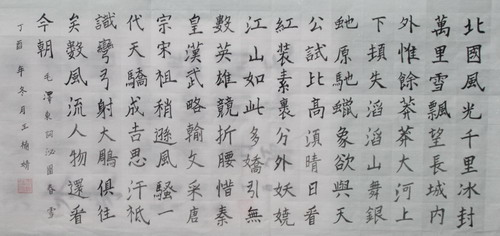 北國風光千里冰封
萬里雪飄望長城內
外惟餘莽莽大河上
下頓失滔滔山舞銀
虵原馳蠟象欲與天
公試比高須晴日看
紅裝素裹分外妖嬈
江山如此多嬌引無
數英雄競折腰惜秦
皇漢武略翰文采唐
宗宋祖稍遜風騷一
代天驕成吉思汗祇
識彎弓射大鵰俱往
矣數風流人物還看
今朝 毛澤東詞沁園春雪
丁酉年冬月王楠